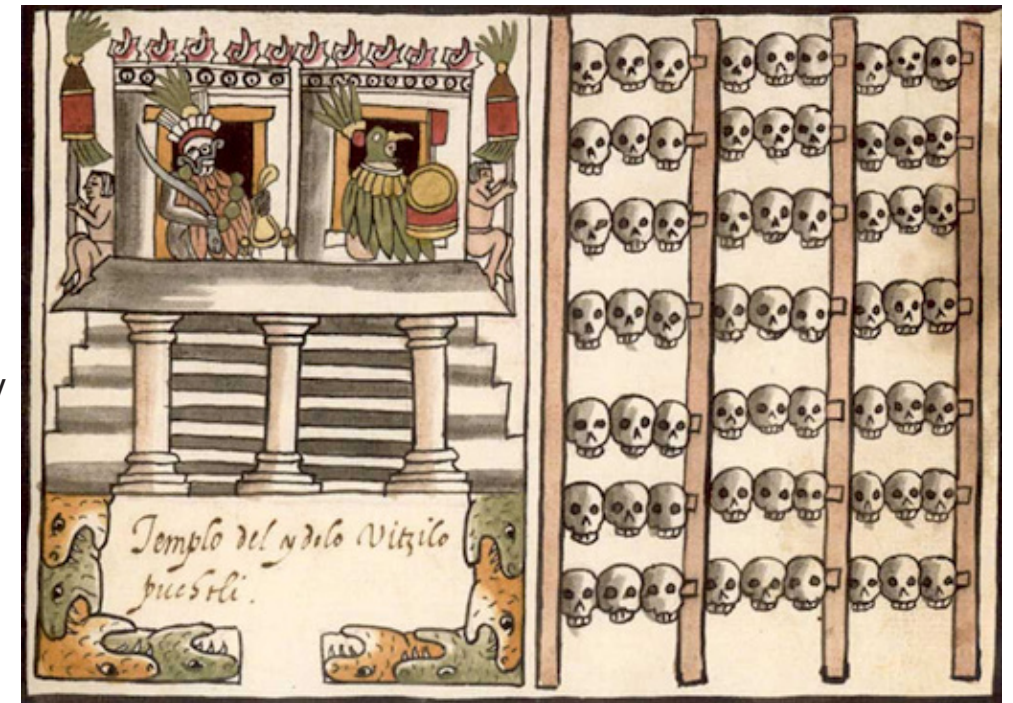 Templo del ydolo Vitzilo
puchtli.
y